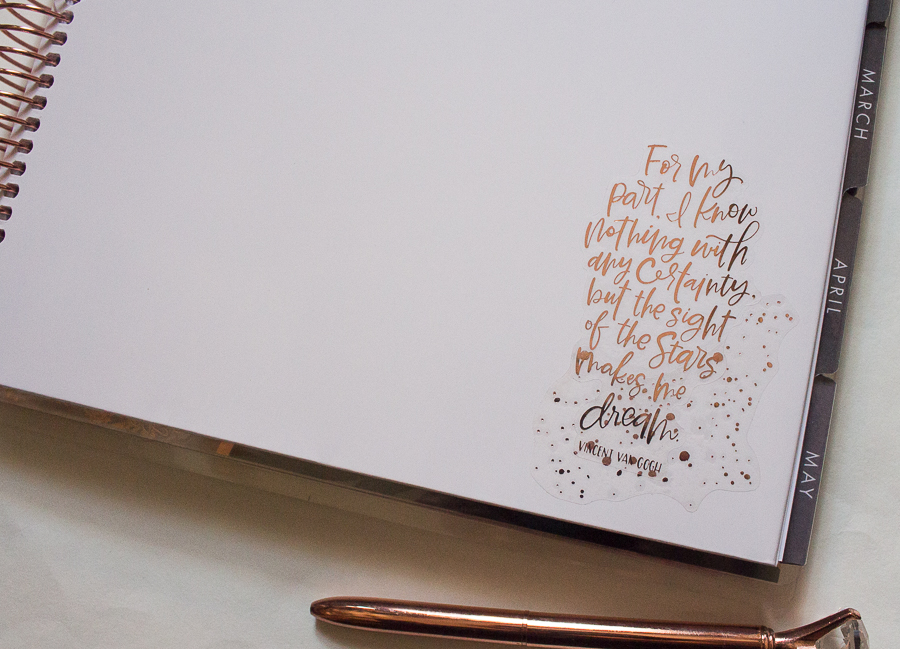 For my
part, I know
nothing with
any Certainty,
but the sight
of the Stars
makes me
dream.
VINCENT VAN GOGH
MARCH
APRIL
MAY